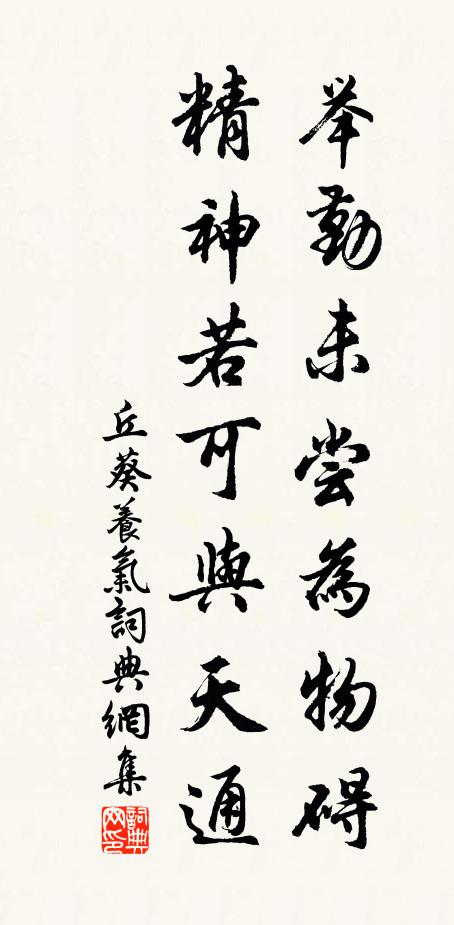 举勤未尝為物碍
精神若可與天通
丘葵養氣詞典網集
詞典
网印